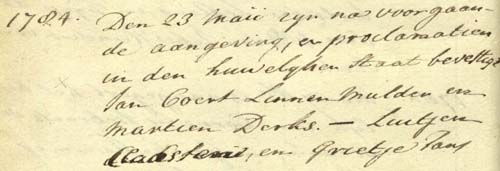 1784. Den 23 Maii zyn na voorgaan-
de aangeving, en proclamatien
in den huwelyken Staat bevestigt
Jan Coert Linnen Mulder en
Martien Derks. — Luitjen
en Grietje Jans